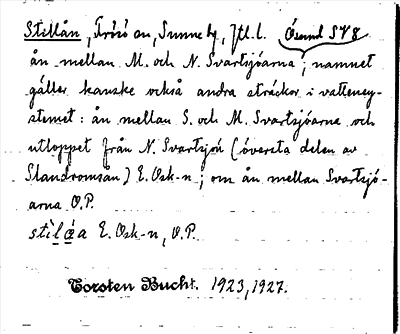 Stillån, Frösö sn, Sunne tg, Jtl. l. Åsund SV8
ån mellan M. och N. Svartsjöarna; namnet
gäller kanske också andra sträckor i vattensy-
stemet: ån mellan S. och M. Svartsjöarne och
utloppet från N. Svartsjön (översta delen av
) E. Osk-n; om ån mellan Svartsjö-
arna O.P.
E. Osk-n, O.P.
Torsten Bucht. 1923, 1927.